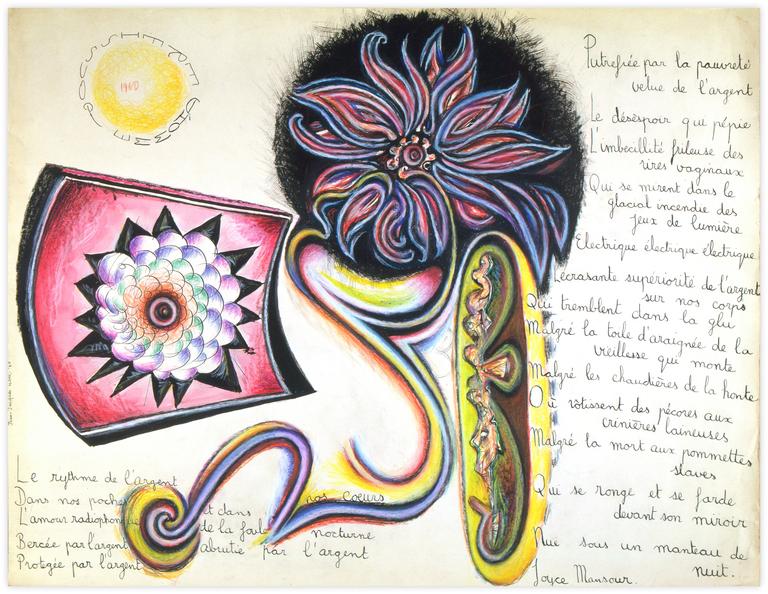 HOMME POSSÉDÉ
1960
Putrefiée par la pauvreté
velue de l'argent
Le désespoir qui pépie
L'imbecillité frileuse des
rires vaginaux
Qui se mirent dans le
glacial incendie des
jeux de lumière
Electrique électrique électrique
L'écrasante supériorité de l'argent
sur nos corps
Qui tremblent dans la glu
Malgré la toile d'araignée de la
vieillesse qui monte
Malgré les chaudières de la honte
Où rôtissent des pécores aux
crinières laineuses
Malgré la mort aux pommettes
slaves
Qui se ronge et se farde
devant son miroir
Nue sous un manteau de
nuit.
Joyce Mansour.
Le rythme de l'argent
Dans nos poches et dans nos coeurs
L'amour radiophonique de la foule nocturne
Bercée par l'argent abrutie par l'argent
Protegée par l'argent